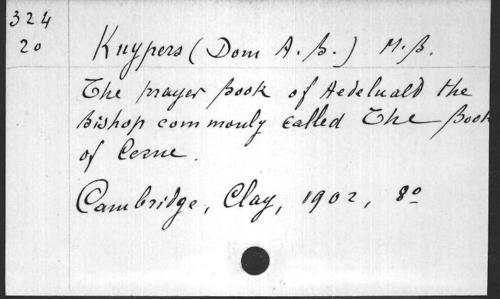 324
20
Kuypers (Dom A. B.) M.B.
The prayer book of Aedeluald the
Bishop commonly called The Book
of Cerne.
Cambridge, Clay, 1902, 8º